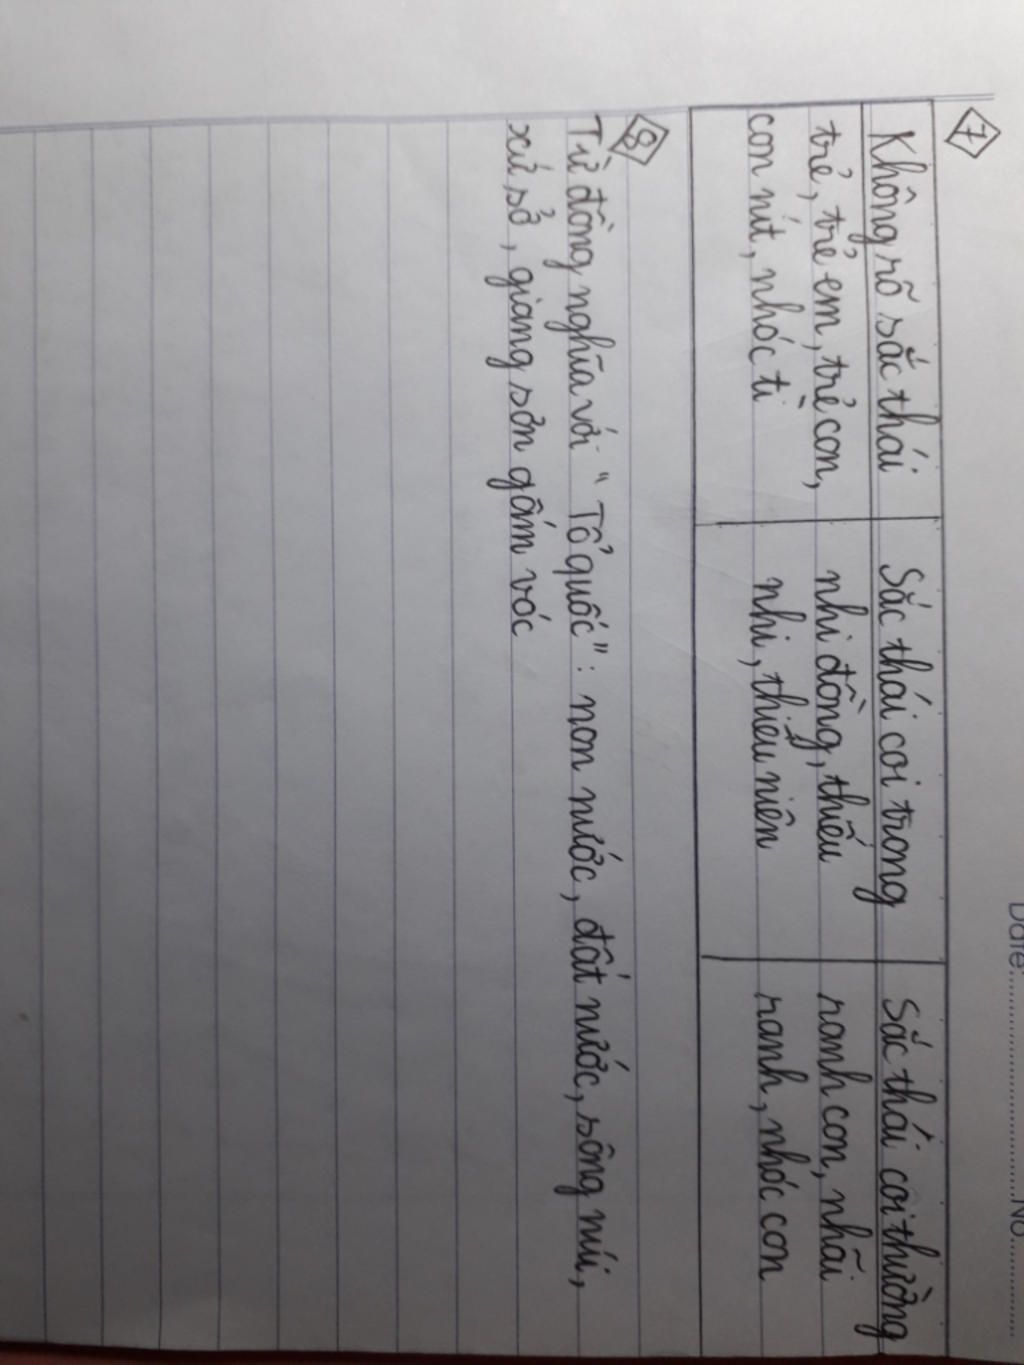 Date..............................No..............
7
Không rõ sắc thái | Sắc thái coi trong | Sắc thái coi thường
trẻ, trẻ em, trẻ con, | nhi đồng, thiếu | ranh con, nhãi
con nít, nhóc tì | nhi, thiếu niên | ranh, nhóc con
8
Từ đồng nghĩa với "Tổ quốc": non nước, đất nước, sông núi,
xứ sở, giang sơn gấm vóc